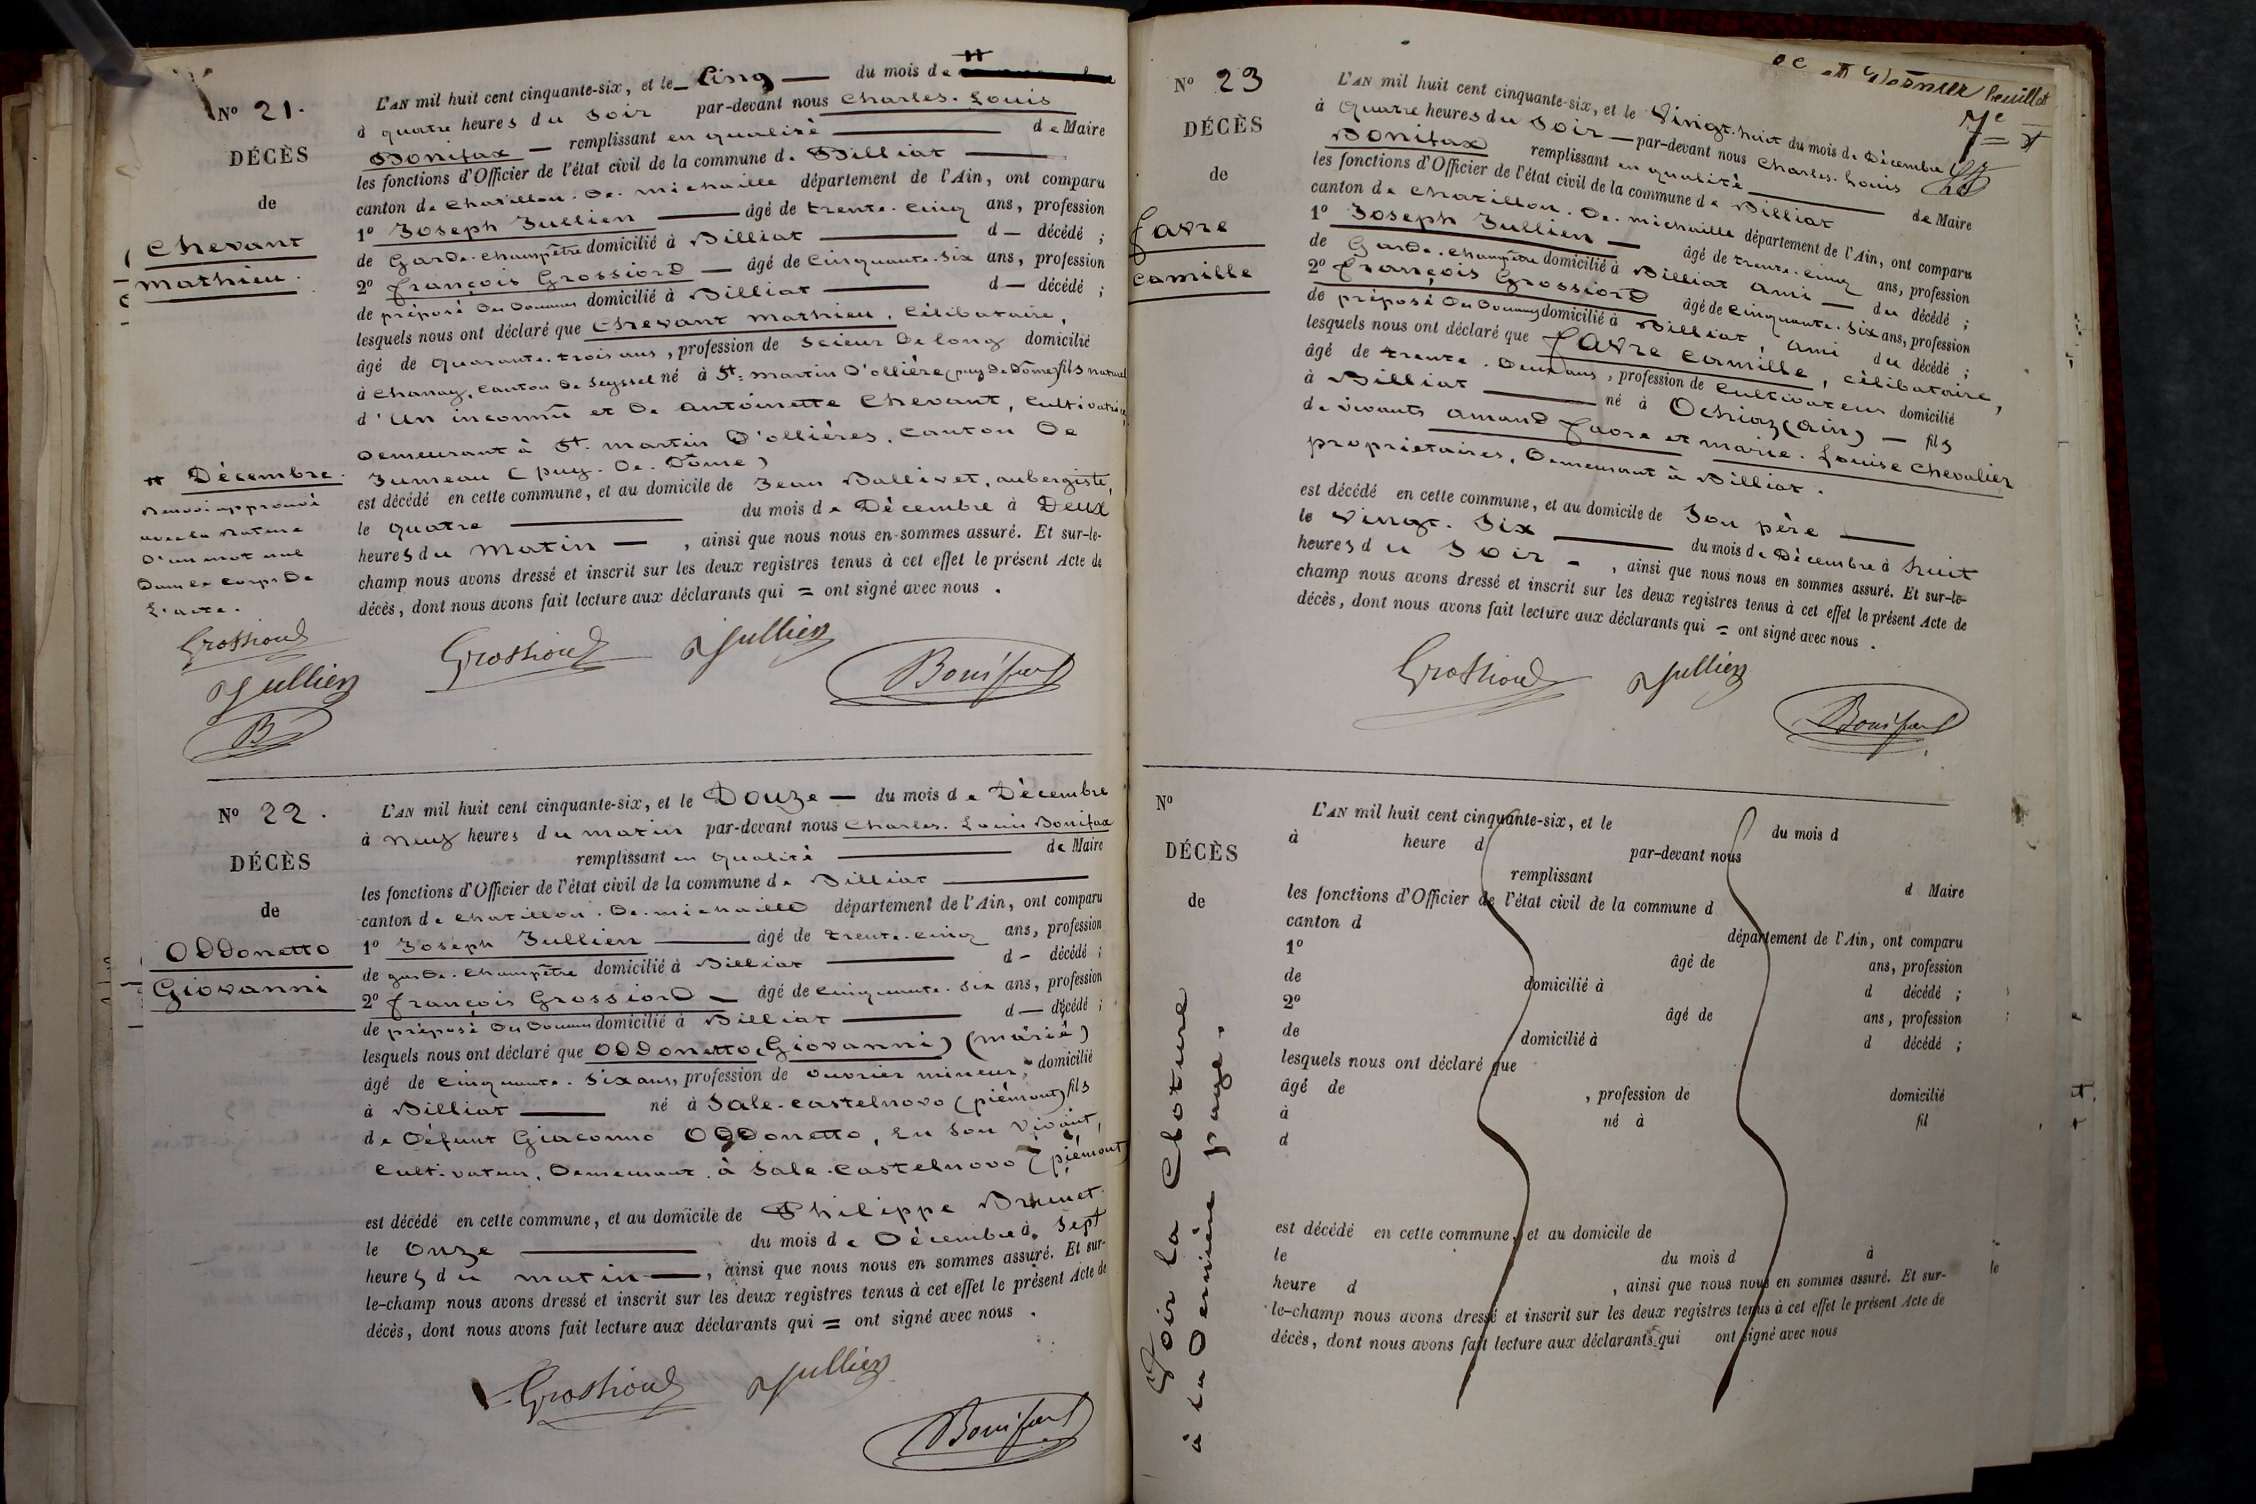 N° 21.
DÉCÈS
de
Chevant
Mathieu.
L'AN mil huit cent cinquante-six, et le Cinq — du mois de #
à quatre heures du soir par-devant nous Charles-Louis
Bonifax — remplissant en qualité — de Maire
les fonctions d'Officier de l'état civil de la commune de Billiat —
canton de Chatillon-De-Michaille département de l'Ain, ont comparu
1° Joseph Jullien — âgé de trente-cinq ans, profession
de Garde-Champêtre domicilié à Billiat — d — décédé ;
2° François Grossiord — âgé de Cinquante-six ans, profession
de préposé des Douanes domicilié à Billiat — d — décédé ;
lesquels nous ont déclaré que Chevant Mathieu, Célibataire,
âgé de quarante-trois ans, profession de Scieur De long domicilié
à Chanay, Canton de Seyssel né à St. Martin D'ollière (puy De Dôme) fils naturel
d'Un inconnu et De Antoinette Chevant, Cultivatrice,
Demeurant à St. Martin D'ollières, Canton De
Jumeau (puy-De-Dôme)
est décédé en cette commune, et au domicile de Jean Ballivet, aubergiste,
le quatre — du mois de Décembre à Deux
heures du Matin — , ainsi que nous nous en sommes assuré. Et sur-le-
champ nous avons dressé et inscrit sur les deux registres tenus à cet effet le présent Acte de
décès, dont nous avons fait lecture aux déclarants qui = ont signé avec nous .
# Décembre.
Renvoi approuvé
avec la rature
D'un mot nul
Dans le corps De
L'acte.
Grossiord
Jullien
B
Grossiord Jullien Bonifax
N° 22.
DÉCÈS
de
ODDonetto
Giovanni
L'AN mil huit cent cinquante-six, et le Douze — du mois de Décembre
à neuf heures du matin par-devant nous Charles-Louis Bonifax
remplissant en qualité — de Maire
les fonctions d'Officier de l'état civil de la commune de Billiat —
canton de Chatillon-De-Michaille département de l'Ain, ont comparu
1° Joseph Jullien — âgé de trente-cinq ans, profession
de garde-Champêtre domicilié à Billiat — d — décédé ;
2° François Grossiord — âgé de cinquante-six ans, profession
de préposé des Douanes domicilié à Billiat — d — décédé ;
lesquels nous ont déclaré que ODDonetto (Giovanni) (marié)
âgé de cinquante-six ans, profession de ouvrier mineur, domicilié
à Billiat — né à Sale-Castelnovo (piémont) fils
de Défunt Giacomo ODDonetto, En Son vivant,
Cultivateur, Demeurant à Sale-Castelnovo (piémont)
est décédé en cette commune, et au domicile de Philippe Brunet
le onze — du mois de Décembre à Sept
heures du matin — , ainsi que nous nous en sommes assuré. Et sur-
le-champ nous avons dressé et inscrit sur les deux registres tenus à cet effet le présent Acte de
décès, dont nous avons fait lecture aux déclarants qui = ont signé avec nous .
Grossiord Jullien
Bonifax
et Dernier feuillet
7e
N° 23
DÉCÈS
de
Favre
Camille
L'AN mil huit cent cinquante-six, et le Vingt-huit du mois de Décembre
à Quatre heures du Soir — par-devant nous Charles-Louis
Bonifax remplissant en qualité — de Maire
les fonctions d'Officier de l'état civil de la commune de Billiat
canton de Chatillon-De-Michaille département de l'Ain, ont comparu
1° Joseph Jullien — âgé de trente-cinq ans, profession
de Garde-Champêtre domicilié à Billiat ami — du décédé ;
2° François Grossiord âgé de Cinquante-six ans, profession
de préposé des Douanes domicilié à Billiat, ami du décédé ;
lesquels nous ont déclaré que Favre Camille, célibataire,
âgé de trente-Deux ans, profession de Cultivateur domicilié
à Billiat — né à Ochiaz (Ain) — fils
de vivants Amand Favre et Marie-Louise Chevalier
propriétaires, Demeurant à Billiat.
est décédé en cette commune, et au domicile de Son père —
le Vingt-Six — du mois de Décembre à huit
heures du Soir — , ainsi que nous nous en sommes assuré. Et sur-le-
champ nous avons dressé et inscrit sur les deux registres tenus à cet effet le présent Acte de
décès, dont nous avons fait lecture aux déclarants qui = ont signé avec nous .
Grossiord Jullien
Bonifax
N°
DÉCÈS
de
L'AN mil huit cent cinquante-six, et le du mois d
à heure d par-devant nous
remplissant d Maire
les fonctions d'Officier de l'état civil de la commune d
canton d département de l'Ain, ont comparu
1° âgé de ans, profession
de domicilié à d décédé ;
2° âgé de ans, profession
de domicilié à d décédé ;
lesquels nous ont déclaré que
âgé de , profession de domicilié
à né à fil
d
est décédé en cette commune, et au domicile de
le du mois d à
heure d , ainsi que nous nous en sommes assuré. Et sur-
le-champ nous avons dressé et inscrit sur les deux registres tenus à cet effet le présent Acte de
décès, dont nous avons fait lecture aux déclarants qui ont signé avec nous
Voir la Cloture
à la Dernière page.
le